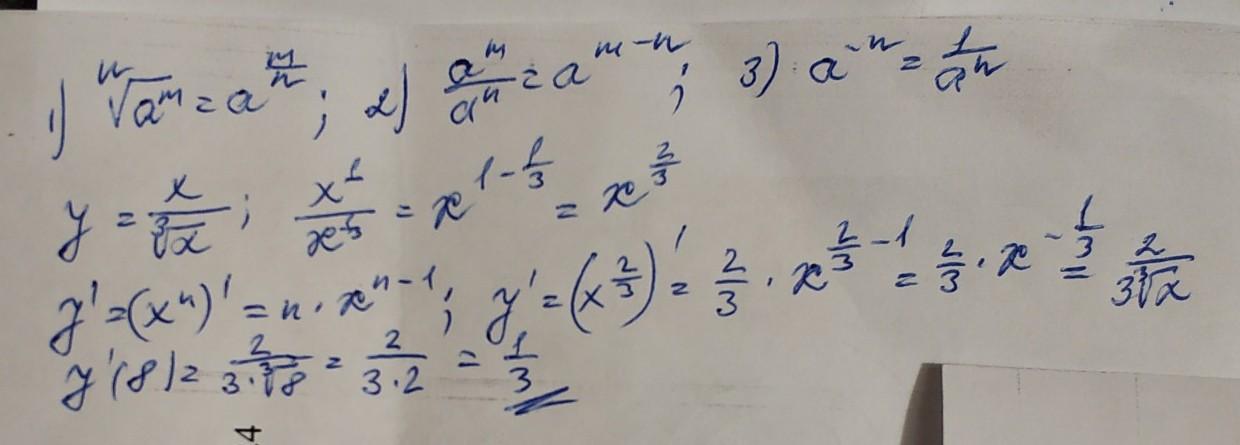 1) ⁿ√aᵐ = a^(m/n); 2) aᵐ/aⁿ = a^(m-n); 3) a^(-n) = 1/aⁿ
y = x/∛x; x¹/x^(1/3) = x^(1-1/3) = x^(2/3)
y' = (xⁿ)' = n · x^(n-1); y' = (x^(2/3))' = 2/3 · x^(2/3-1) = 2/3 · x^(-1/3) = 2/(3∛x)
y'(8) = 2/(3·∛8) = 2/(3·2) = 1/3
4